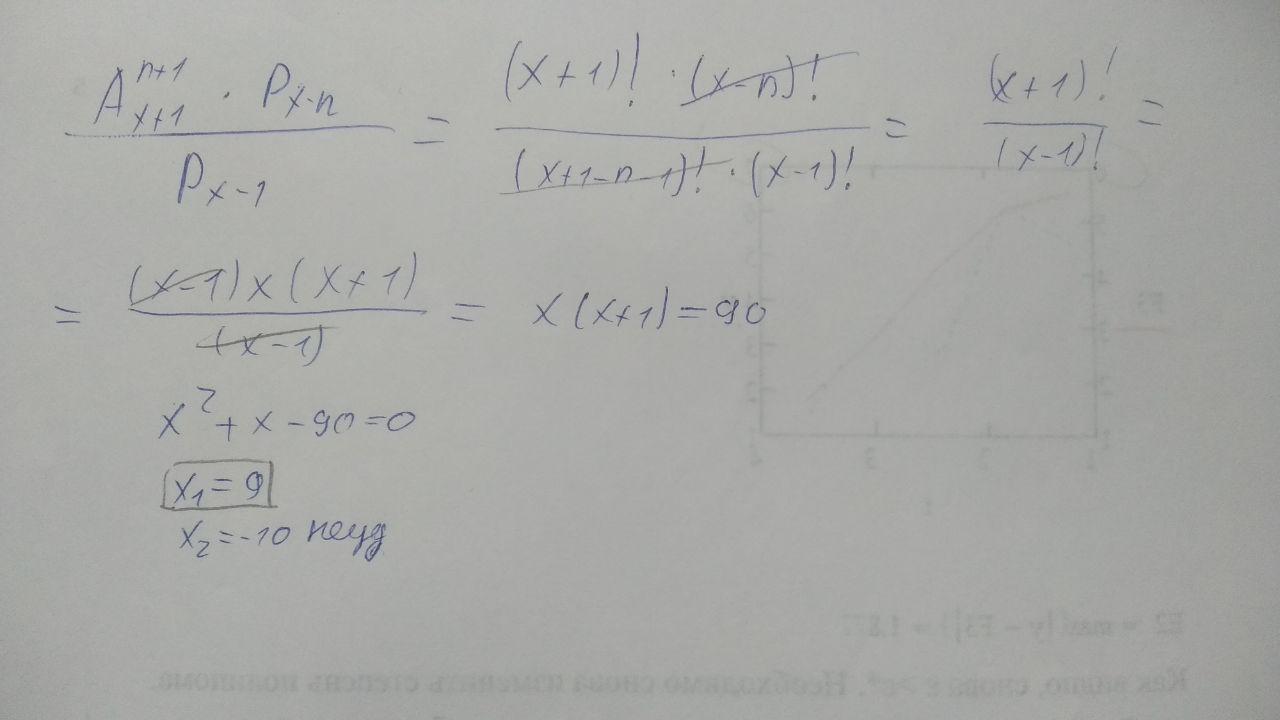 A_{x+1}^{n+1} · P_{x-n} / P_{x-1} = (x+1)! · (x-n)! / (x+1-n-1)! · (x-1)! = (x+1)! / (x-1)! =
= (x-1)x(x+1) / (x-1) = x(x+1)=90
x² + x - 90 = 0
x₁ = 9
x₂ = -10 неуд
E2 = max(|y – F3|) = 1.877
Как видно, снова ε >ε*. Необходимо снова изменить степень полинома.